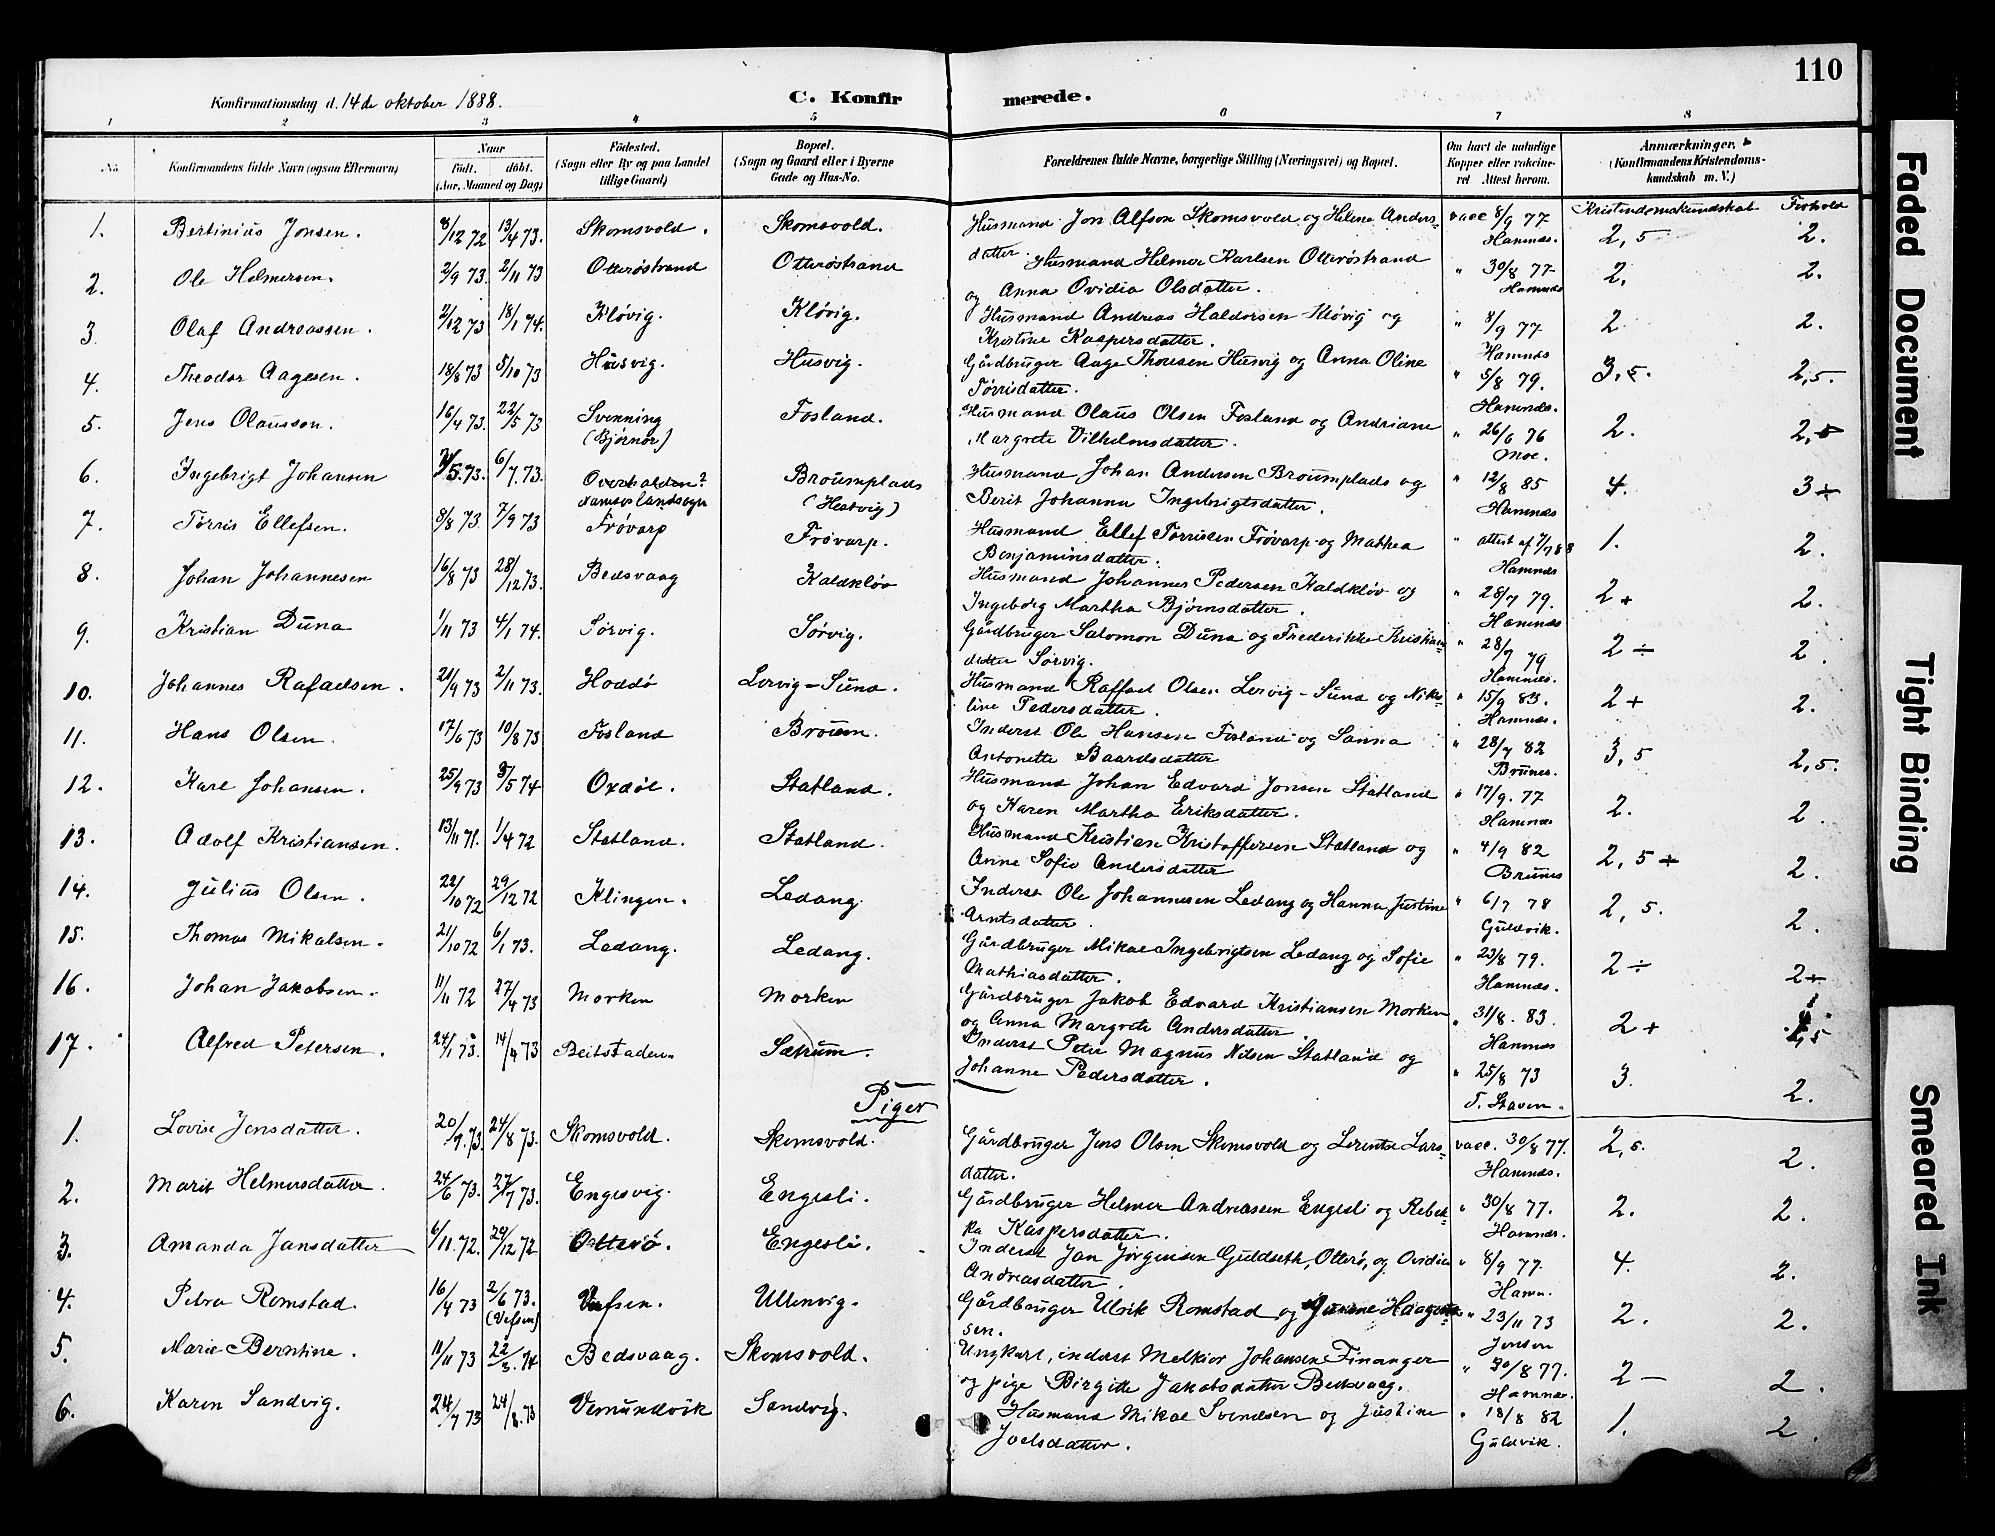 110
Konfirmationsdag d. 14de oktober 1888.
C. Konfirmerede.
1 2 3 4 5 6 7 8
No. Konfirmandens fulde Navn (ogsaa Efternavn) Naar født. døbt. (Aar, Maaned og Dag) Fødested. (Sogn eller By og paa Landet tillige Gaard) Bopæl. (Sogn og Gaard eller i Byerne Gade og Hus-No. Forældrenes fulde Navne, borgerlige Stilling (Næringsvei) og Bopæl. Om havt de naturlige Kopper eller vakcineret Attest herom. Anmærkninger. (Konfirmandens Kristendomskundskab m. V.)
Kristendomskundskab Forhold
1. Bertinius Jonsen. 8/12 72 13/4 73. Skomsvold. Skomsvold. Husmand Jon Alfson Skomsvold og Helene Andersdatter. vacc 8/9 77 Hamnæs. 2,5 2.
2. Ole Helmersen. 2/9 73 2/11 73 Otterøstrand Otterøstrand Husmand Helmer Karlsen Otterøstrand og Anna Ovidia Olsdatter. " 30/8 77 Hamnæs 2. 2.
3. Olaf Andreassen. 2/12 73 18/1 74. Kløvig. Kløvig. Husmand Andreas Haldorsen Kløvig og Kristine Kaspersdatter. " 8/9 77 Hamnæs 2 2.
4. Theodor Aagesen. 18/8 73 5/10 73 Husvig. Husvig. Gårdbruger Aage Thoresen Husvig og Anna Oline Tørrisdatter. " 5/8 79. Hamnæs. 3,5. 2,5.
5. Jens Olausson. 16/4 73. 22/5 73 Svenning (Bjørnør) Fosland. Husmand Olaus Olsen Fosland og Andriane Margrete Vilhelmsdatter. " 26/6 76 Moe. 2. 2,5
6. Ingebrigt Johansen 5.73. 6/7.73. Overhalden? Namsos landsogn Brøumplads (Hestvig) Husmand Johan Andersen Brøumplads og Berit Johanna Ingebrigtsdatter. " 12/8 85 Hamnæs 4. 3÷
7. Tørris Ellefsen. 8/8 73. 7/9 73 Frøvarp Frøvarp. Husmand Ellef Tørrissen Frøvarp og Mathea Benjaminsdatter. " attest af 7/7 88 Hamnæs 1. 2.
8. Johan Johannesen 16/8 73 28/12 73. Bedsvaag Kaldkløv Husmand Johannes Pedersen Kaldkløv og Ingeborg Martha Bjørnsdatter. " 28/7 79. Hamnæs 2+ 2.
9. Kristian Duna 1/11 73 4/1 74. Sørvig. Sørvig. Gårdbruger Salomon Duna og Frederikke Kristiansdatter Sørvig. " 28/7 79 Hamnæs. 2÷ 2.
10. Johannes Rafaelsen. 21/9 73 2/11 73. Hoddø Lervig-Sund. Husmand Raffael Olsen Lervig-Sund og Nikoline Pedersdatter. " 15/9 83. Hamnæs. 2+ 2.
11. Hans Olsen. 17/6 73 10/8 73 Fosland Brøum. Inderst Ole Hansen Fosland og Sanna Antonette Baardsdatter " 28/7 82 Brunes. 3,5 2,5.
12. Karl Johansen. 25/9 73 3/5 74 Oxdøl. Statland. Husmand Johan Edvard Jonsen Statland og Karen Martha Eriksdatter. " 17/9. 77 Hamnæs 2. 2.
13. Adolf Kristiansen. 13/11 71. 1/4 72 Statland. Statland. Husmand Kristian Kristoffersen Statland og Anne Sofie Andersdatter " 4/9 82 Brunes 2,5+ 2.
14. Julius Olsen. 22/10 72 29/12 72 Klingen. Ledang. Inderst Ole Johannesen Ledang og Hanna Justine Arntsdatter. " 6/7 78 Guldvik. 2,5. 2.
15. Thomas Mikalsen. 21/10 72 6/1 73. Ledang. Ledang. Gårdbruger Mikal Ingebrigtsen Ledang og Sofie Mathiasdatter. " 23/8 79. Hamnæs. 2÷ 2÷
16. Johan Jakobsen. 11/11 72 27/4 73 Morken Morken Gårdbruger Jakob Edvard Kristiansen Morken og Anna Margrete Andersdatter. " 31/8. 83. Hamnæs 2+ ,5
17. Alfred Petersen. 24/1 73. 14/4 73 Beitstaden Sætrum. Inderst Peter Magnus Nilsen Statland og Johanne Pedersdatter. " 25/8 73 T. Staven. 3. 2.
Piger
1. Lovise Jensdatter. 20/7.73. 24/8 73. Skomsvold. Skomsvold. Gårdbruger Jens Olsen Skomsvold og Lerentse Larsdatter. vacc. 30/8 77. Hamnæs. 2,5. 2.
2. Marit Helmersdatter. 24/6 73. 27/7 73. Engesvig. Engesli. Gårdbruger Helmer Andreassen Engesli og Rebekka Kaspersdatter. " 30/8 77. Hamnæs. 2. 2.
3. Amanda Jansdatter 6/11.72. 29/12 72 Otterø. Engesli. Inderst Jan Jørgensen Guldseth, Otterø, og Ovidia Andreasdatter. " 8/9 77. Hamn. 4. 2.
4. Petra Romstad. 16/4 73 2/6 73. (Vefsen) Vefsen. Ullenvig. Gårdbruger Ulrik Romstad og Haagensen. " 23/11 73 Jensen 2. 2.
5. Marie Berntine. 11/11 73 22/3. 74 Bedsvaag. Skomsvold. Ungkarl, inderst Melkior Johansen Finanger og pige Birgitte Jakobsdatter Bedsvaag. " 30/8 77. Hamnæs. 2— 2.
6. Karen Sandvig. 24/7 73 24/8. 73 Vemundvik Sandvig. Husmand Mikal Svendsen og Justine Joelsdatter. " 18/8 82 Guldvik. 1. 2.
Faded Document
Tight Binding
Smeared Ink